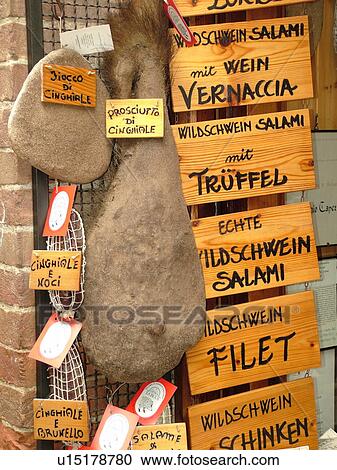 WILDSCHWEIN SALAMI
mit WEIN
VERNACCIA
WILDSCHWEIN SALAMI
mit
TRÜFFEL
ECHTE
WILDSCHWEIN
SALAMI
WILDSCHWEIN
FILET
WILDSCHWEIN
SCHINKEN
PROSCIUTTO
DI
CINGHIALE
DI
CINGHIALE
CINGHIALE E
NOCI
CINGHIALE
E
BRUNELLO
SALAME DI
fotosearch
u15178780
www.fotosearch.com